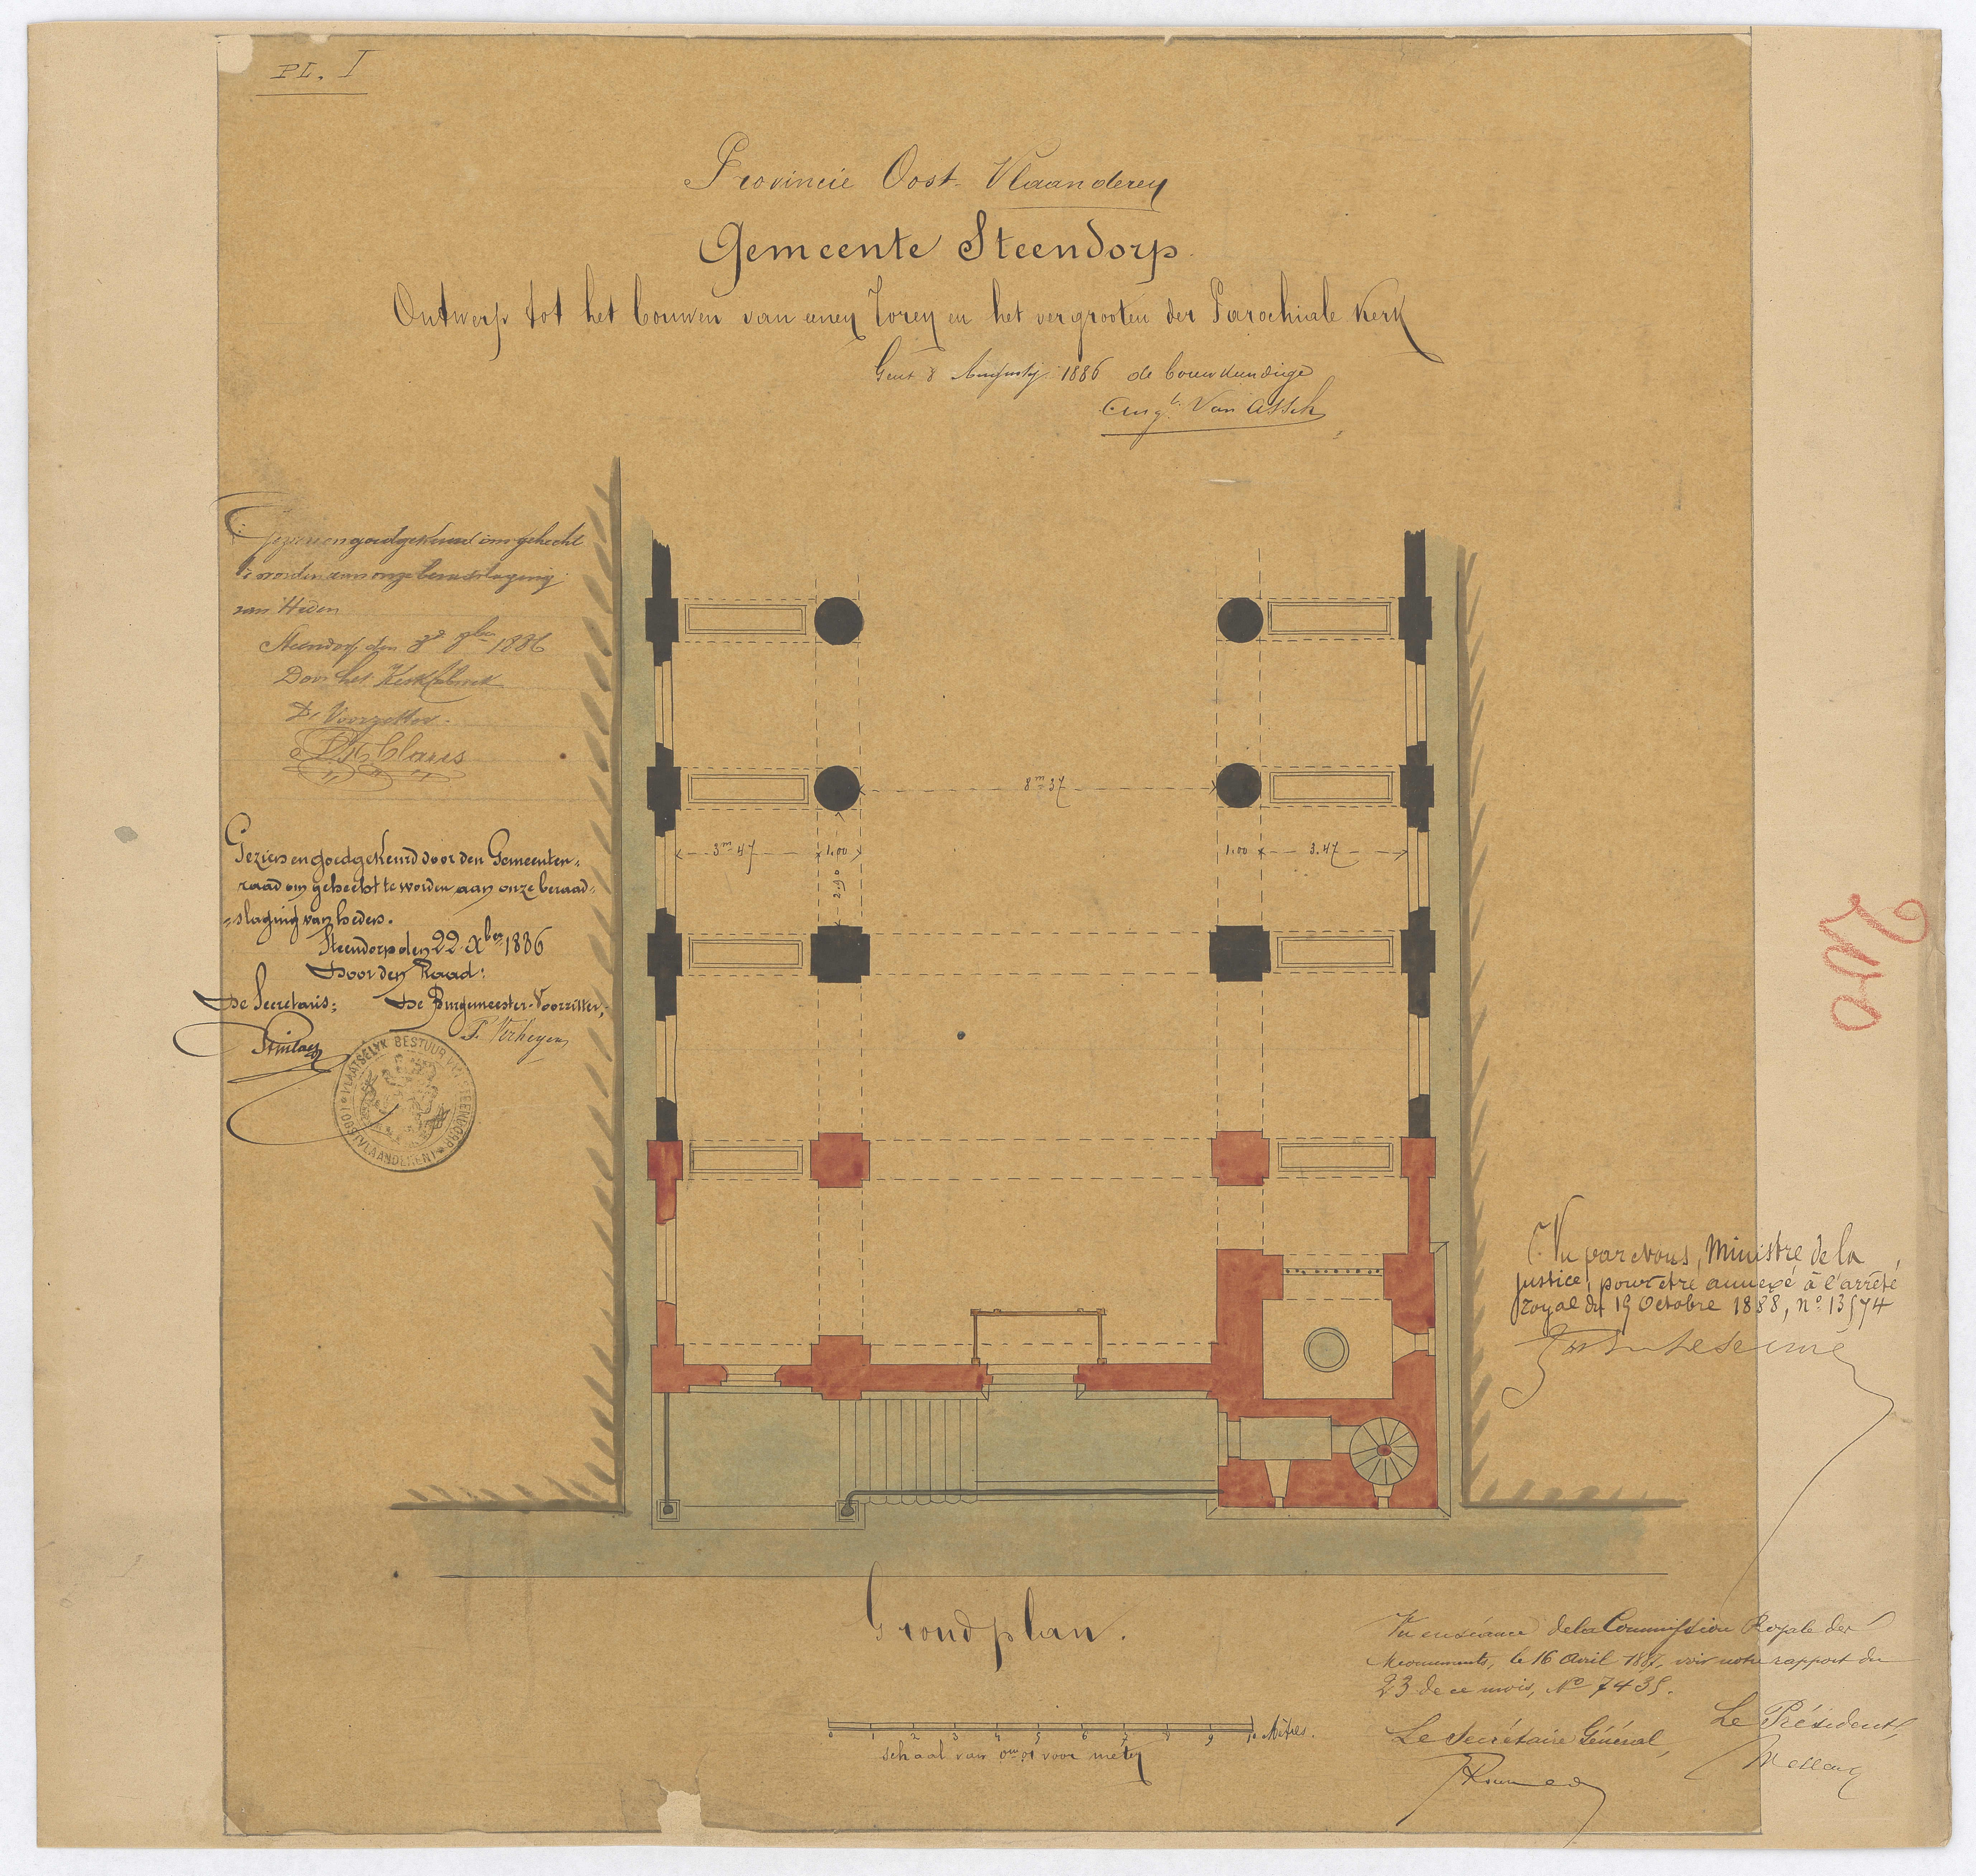 PL. I
Provincie Oost-Vlaanderen
Gemeente Steendorp.
Ontwerp tot het bouwen van eenen Toren en het vergrooten der Parochiale Kerk
Gent 8 Augusty 1886 de bouwkundige
Aug.te Van Assche
Gezien en goedgekeurd om gehecht
te worden aan onze beraadslaging
van Heden
Steendorp den 3e 8ber 1886
Door het Kerkfabriek
De Voorzitter.
Claus
Gezien en goedgekeurd door den Gemeenten-
raad om gehecht te worden aan onze beraad-
-slaging van heden.
Steendorp den 22 Xber 1886
Door den Raad:
De Secretaris; De Burgemeester-Voorzitter,
F. Verheyen
PLAATSELYK BESTUUR VAN STEENDORP (OOSTVLAANDEREN)
8m37
3m47 1.00
1.00 3.47
2.90
200
Vu par nous, Ministre de la
justice, pour être annexé à l'arrêté
royal du 19 Octobre 1888, no 13574
Grondplan.
Vu en séance de la Commission Royale des
Monuments, le 16 Avril 1887, voir notre rapport du
23 de ce mois, No 7435.
Le Président,
Le Secrétaire Général,
0 1 2 3 4 5 6 7 8 9 10 Mètres.
Schaal van 0m01 voor meter